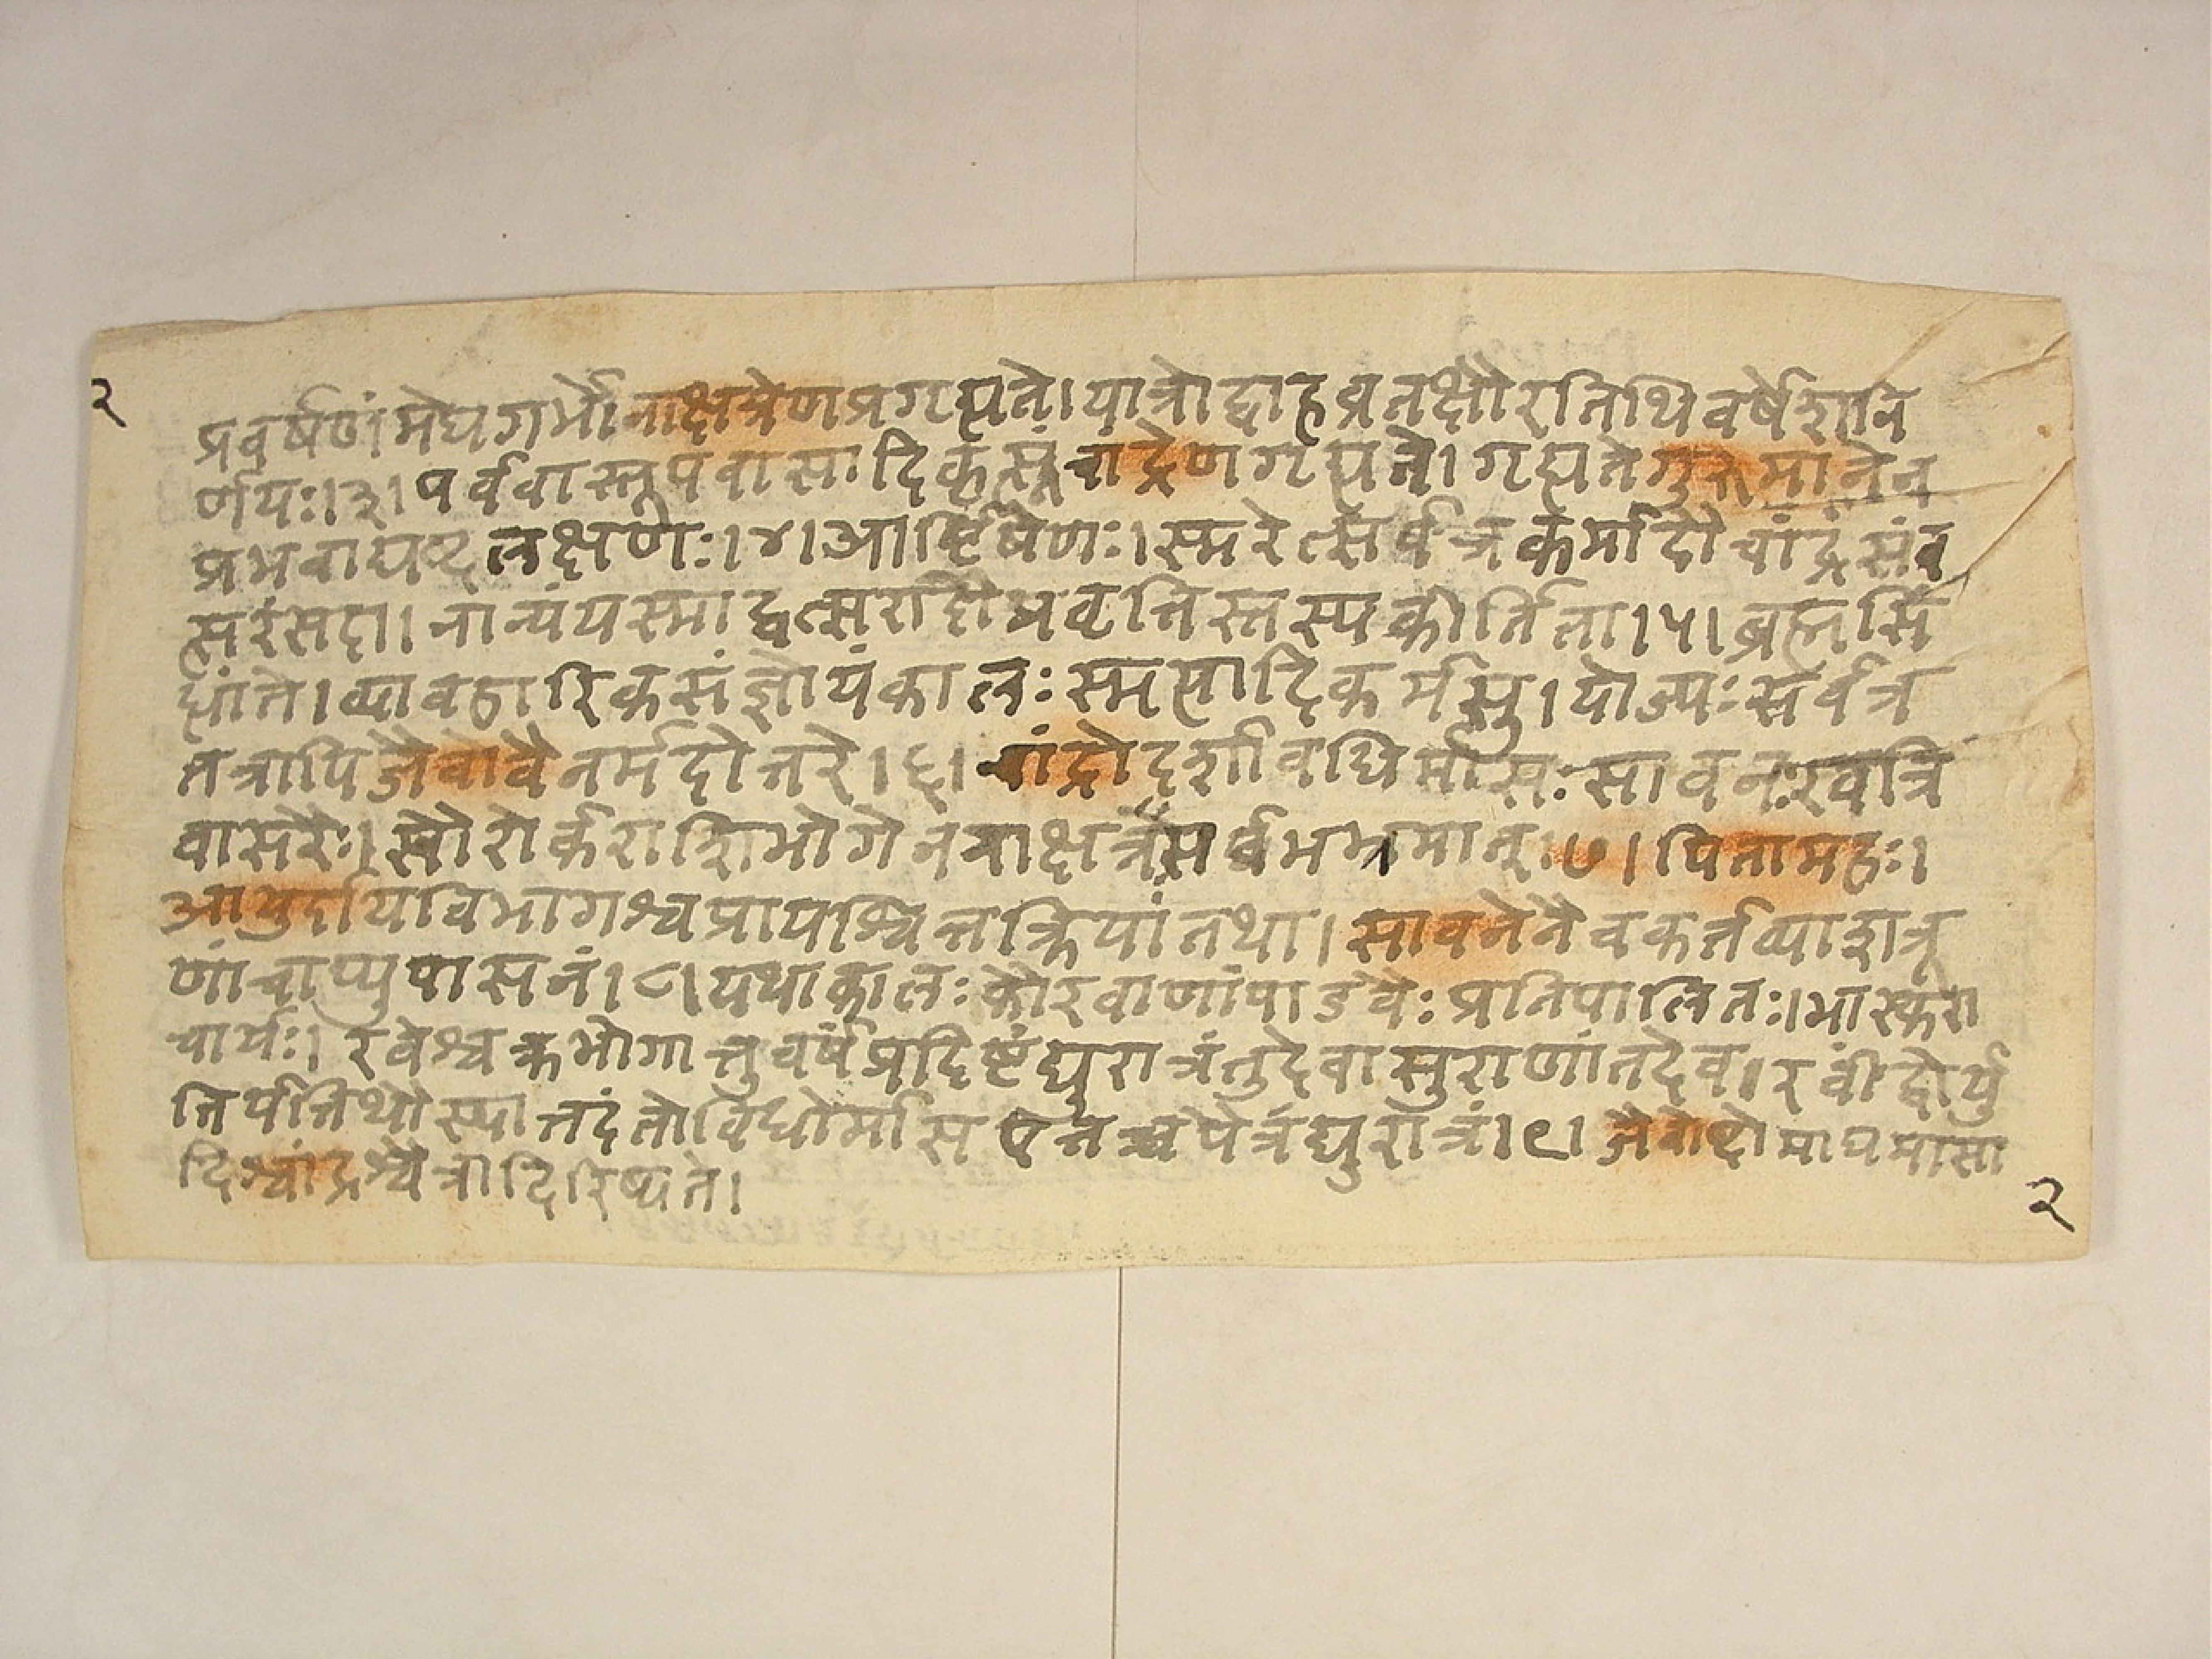 २
प्रवर्षणंमेघगर्भोनाक्षत्रेणप्रगृह्यते।यात्रोद्वाहव्रतक्षौरतिथिवर्षेशनि
र्णयः।३।पर्ववास्तूपवासादिकृत्स्नंचांद्रेणगृह्यते।गृह्यतेगुरूमानेन
प्रभवाद्यष्टलक्षणैः।४।आर्ष्टिषेणः।स्मरेत्सर्वत्रकर्मादौचांद्रंसंव
त्सरंसदा।नान्यंयस्माद्वत्सरादौप्रवृत्तिस्तस्यकीर्तिता।५।ब्रह्मसि
द्धांते।व्यावहारिकसंज्ञोयंकालःस्मृत्यादिकर्मसु।योज्यःसर्वत्र
तत्रापिजैवोवैनर्मदोत्तरे।६।चांद्रोदर्शावधिर्मासःसावनःखत्रि
वासरैः।सौरोर्कराशिभोगेननाक्षत्रंसर्वभभ्रमात्।७।पितामहः।
आयुर्दायविभागश्चप्रायश्चित्तक्रियांतथा।सावनेनैवकर्त्तव्याशत्रू
णांचाप्युपासनं।८।यथाकालःकौरवाणांपाडवैःप्रतिपालितः।भास्करा
चार्यः।रवेश्चक्रभोगात्तुवर्षंप्रदिष्टंद्युरात्रंतुदेवासुराणांतदेव।रवींद्वोर्यु
तिर्यत्तिथौस्यात्तदंतोविधोर्मासएतच्चपैत्रंद्युरात्रं।९।जैवोब्दोमाघमासा
दिश्चांद्रश्चैत्रादिरिष्यते।
२